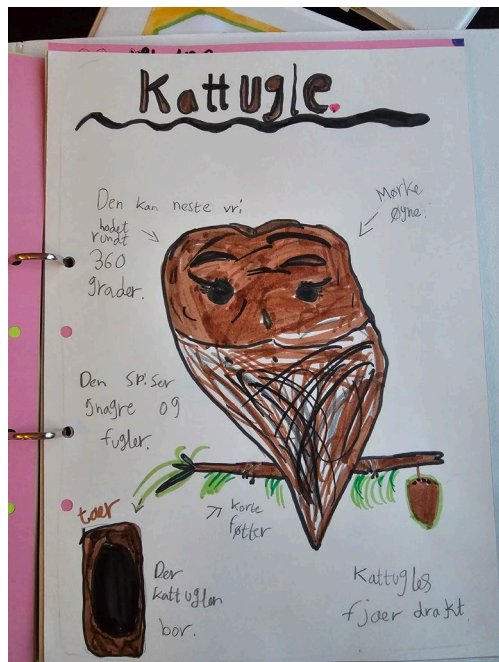 Kattugle.
Den kan neste vri
hodet
rundt
360
grader.
Mørke
øyne.
Den spiser
gnagre og
fugler.
korte
føtter
taer
Der
kattuglen
bor.
Kattugles
fjaer drakt.